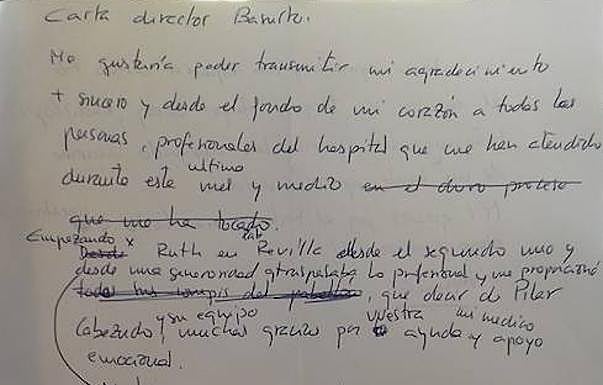 Carta director Basurto.
Me gustaría poder transmitir mi agradecimiento
+ sincero y desde el fondo de mi corazón a todas las
personas, profesionales del hospital que me han atendido
durante este ultimo mes y medio en el duro proceso
que me ha tocado.
Empezando x Ruth en Revilla desde el segundo uno y
desde una generosidad q traspasaba lo profesional y me proporcionó
todas mis compis del pabellón, que decir de Pilar
Cabezudo y su equipo, muchas gracias por vuestra ayuda y apoyo mi medico
emocional.